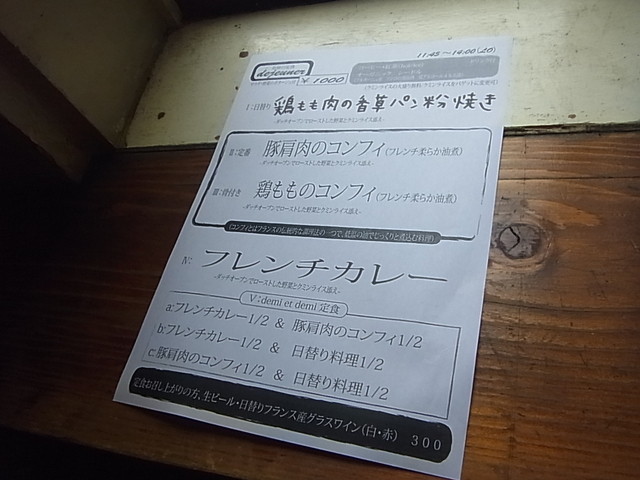 11:45～14:00(20)
dejeuner
￥1000
I:日替り 鶏もも肉の香草パン粉焼き
-ダッチオーブンでローストした野菜とクミンライス添え-
II:定番 豚肩肉のコンフィ(フレンチ柔らか油煮)
-ダッチオーブンでローストした野菜とクミンライス添え-
III:骨付き 鶏もものコンフィ(フレンチ柔らか油煮)
-ダッチオーブンでローストした野菜とクミンライス添え-
(コンフィとはフランスの伝統的な調理法の一つで、低温の油でじっくりと煮込む料理)
IV: フレンチカレー
-ダッチオーブンでローストした野菜とクミンライス添え-
V:demi et demi 定食
a:フレンチカレー1/2 & 豚肩肉のコンフィ1/2
b:フレンチカレー1/2 & 日替り料理1/2
c:豚肩肉のコンフィ1/2 & 日替り料理1/2
定食お召し上がりの方、生ビール・日替りフランス産グラスワイン(白・赤) 300